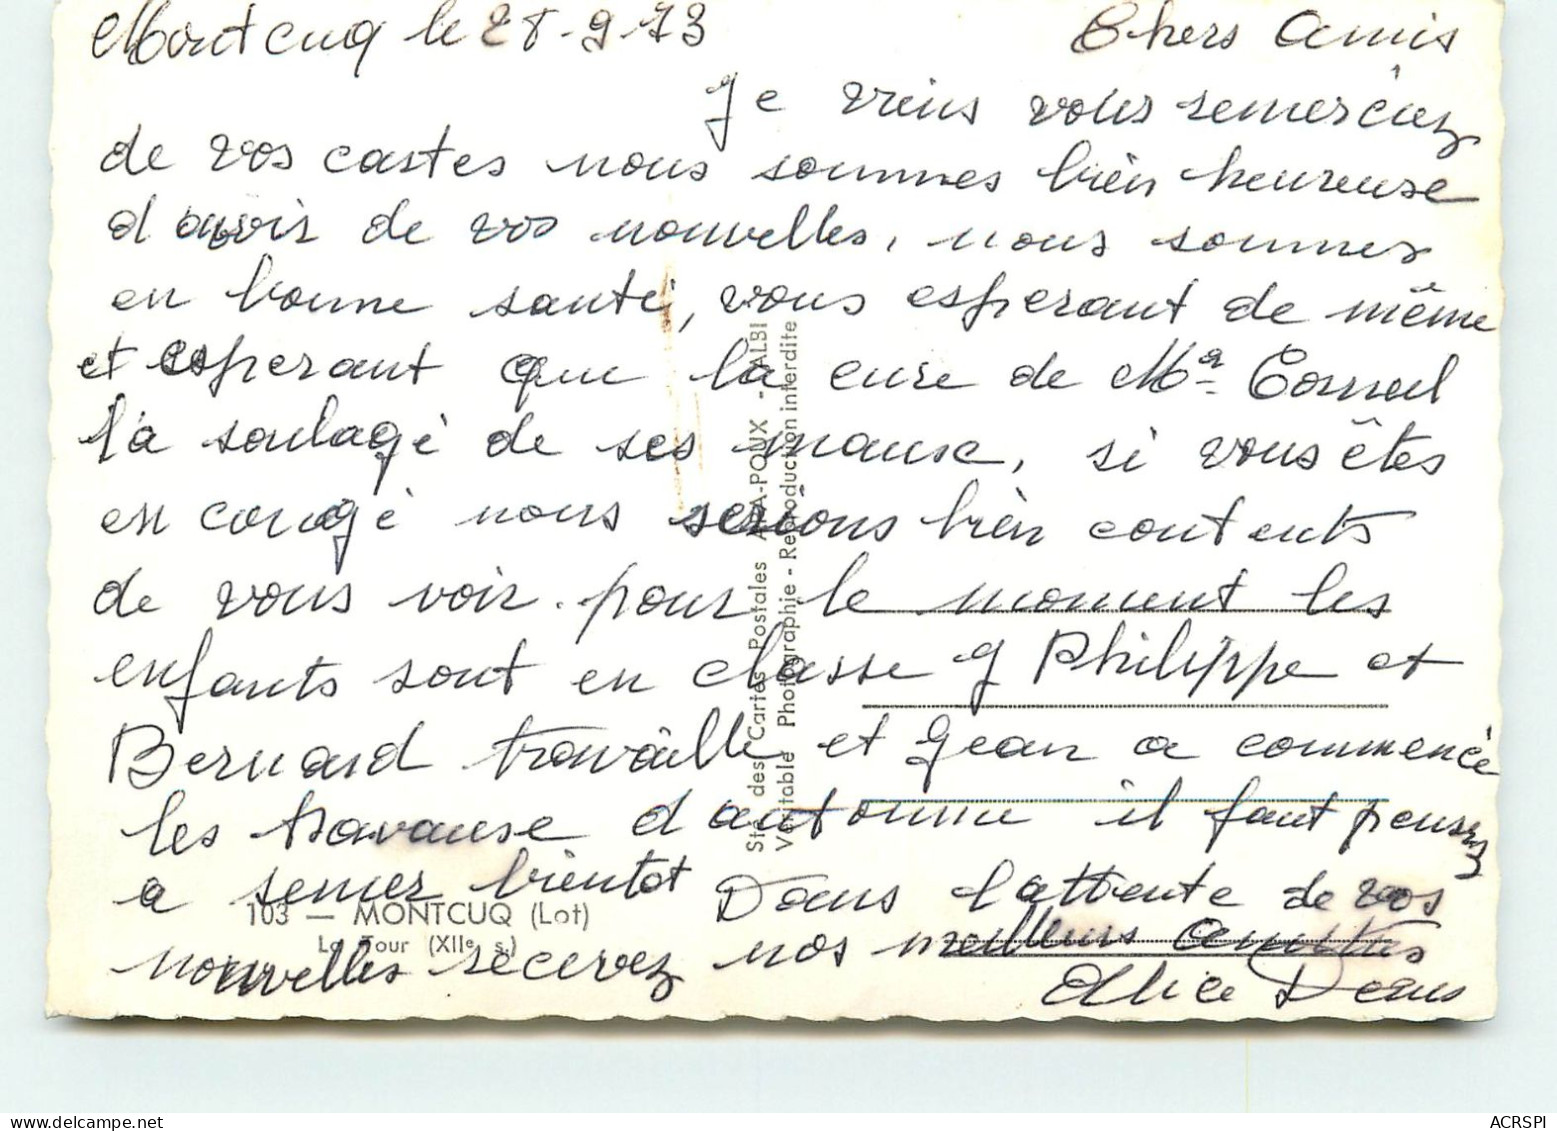 Montcuq le 28-9-73 Chers Amis
Je viens vous remerciez
de vos cartes nous sommes bien heureuse
d'avoir de vos nouvelles, nous sommes
en bonne santé, vous esperant de même
et esperant que la cure de Mr
l'a soulagé de ses maux, si vous êtes
en congé nous serions bien contents
de vous voir. pour le moment les
enfants sont en classe Philippe et
Bernard travaille et Jean a commencé
les travause d'automne il faut penser
a semer bientot Dans l'attente de vos
nouvelles recevez nos meilleurs amitiés
Alice
103 — MONTCUQ (Lot)
La Tour (XIIe s.)
Sté des Cartes Postales APA-POUX - ALBI
Véritable Photographie - Reproduction interdite
ACRSPI